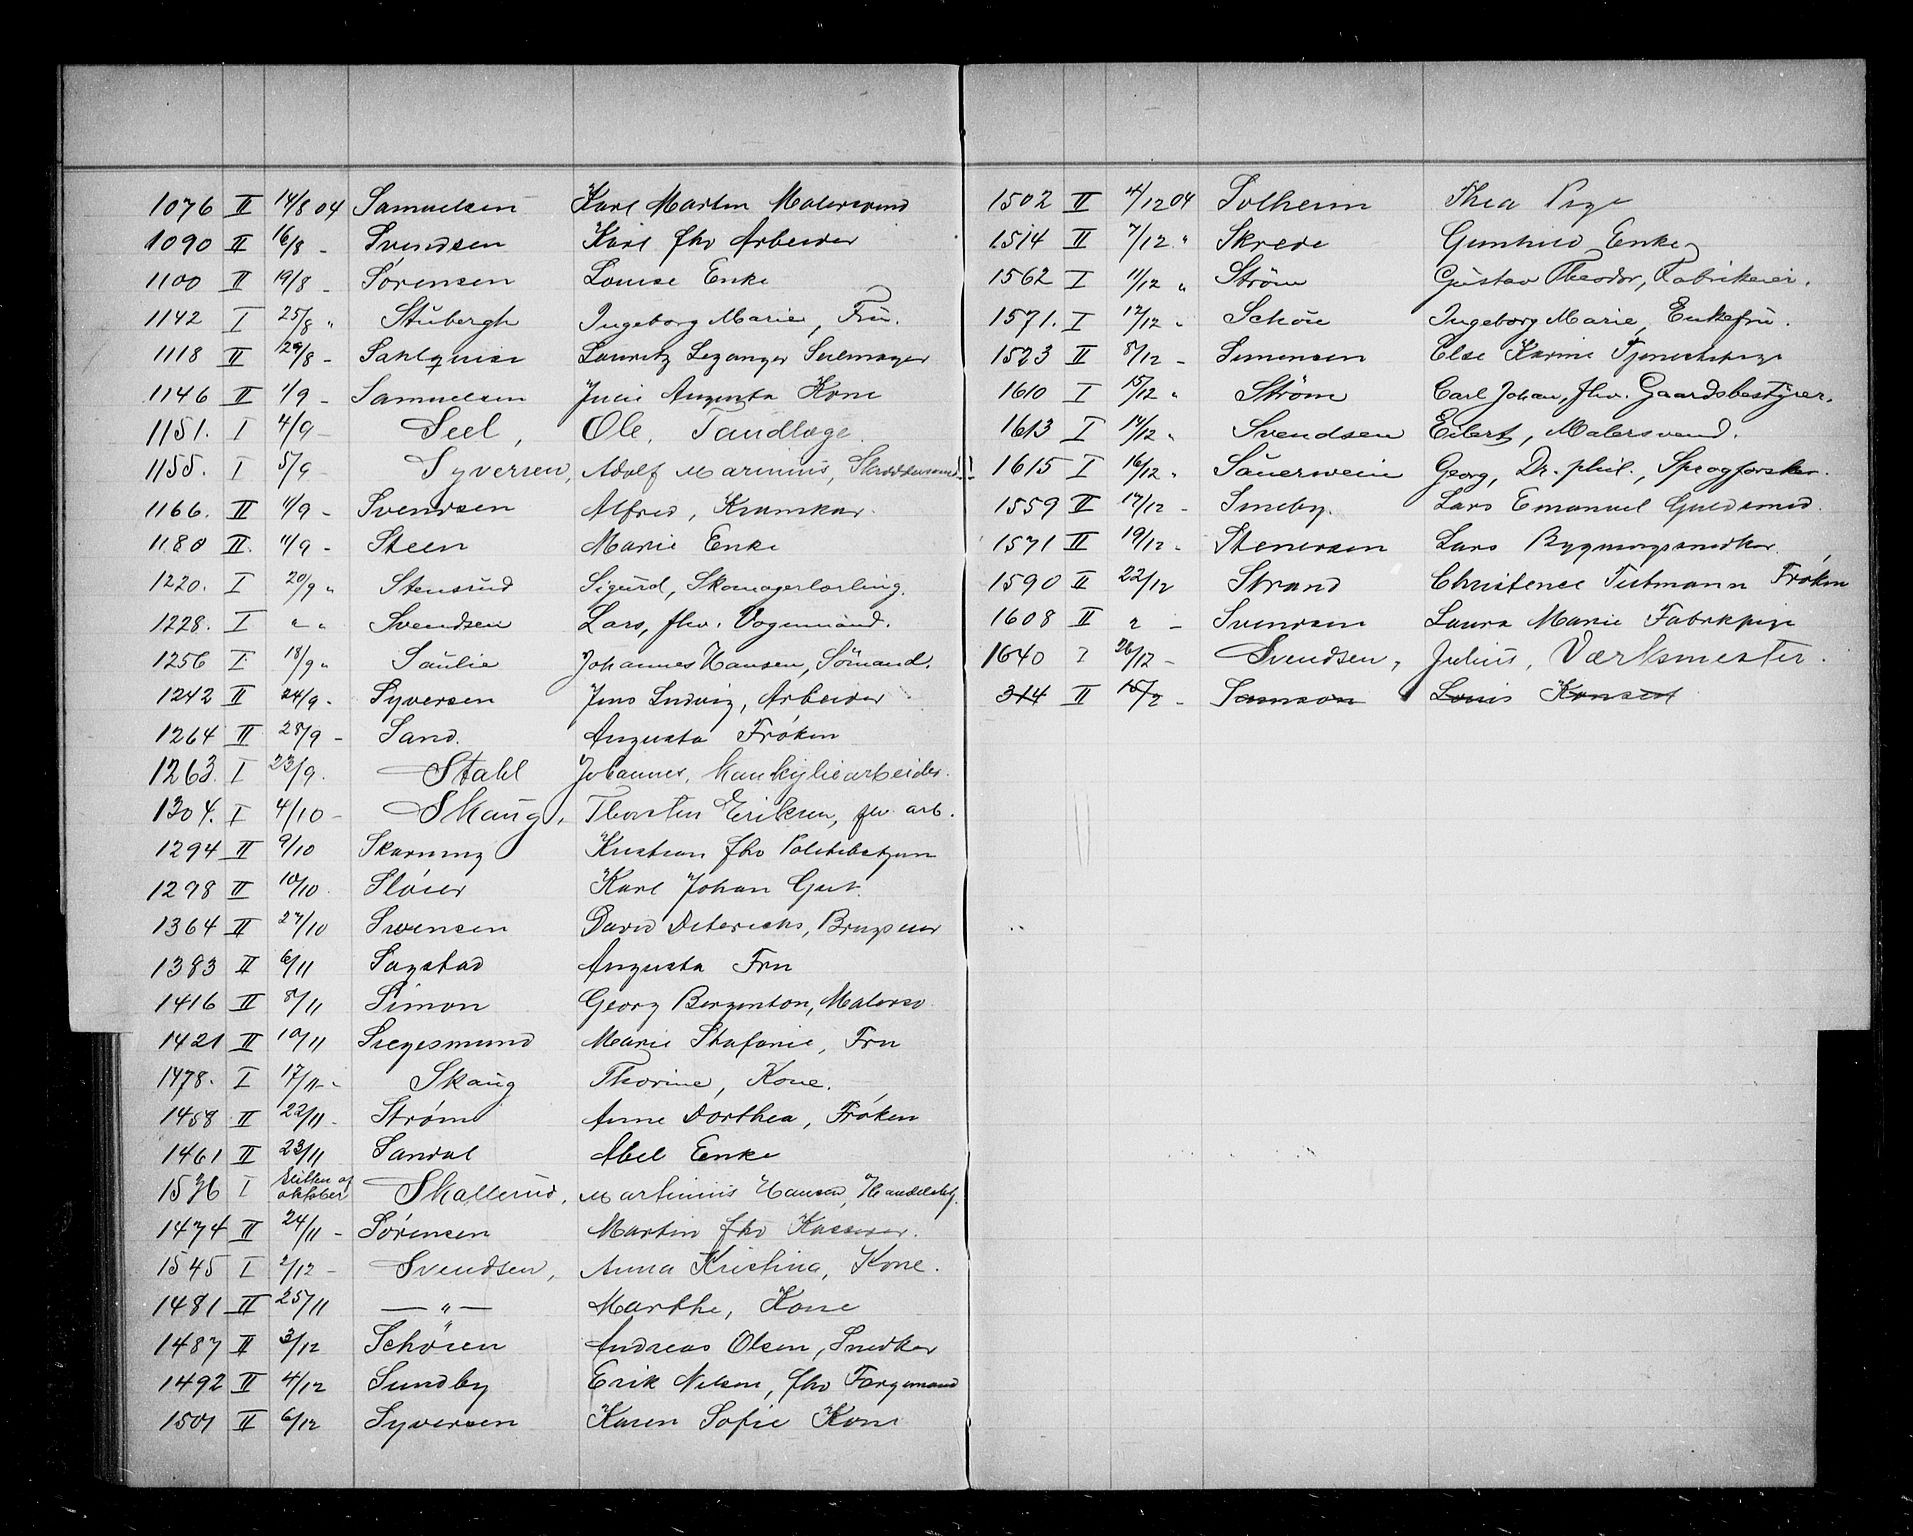 1076 II 14/8 04 Samuelsen Karl Martin Malersvend
1090 II 16/8 - Svendsen Karl fhv Arbeider
1100 II 19/8 - Sørensen Louise Enke
1142 I 25/8 " Stubergh Ingeborg Marie, Fru.
1118 II 29/8 - Sahlquist Lauritz Seilmager
1146 II 1/9 - Samuelsen Julie Augusta Kone
1151. I 4/9 - Seel, Ole, Tandlæge.
1155. I 5/9 - Syversen, Adolf Marinius,
1166. II 11/9 - Svendsen Alfred, Kramkar.
1180 II. 11/9 - Steen Marie Enke
1220. I 20/9 " Stensrud Sigurd, Skomagerlærling.
1228. I " " Svendsen Lars, fhv. Vognmand.
1256 I. 18/9 " Saulie Johannes Hansen, Sömand.
1242 II 24/9 - Syversen Jens Ludvig, Arbeider
1264 II 28/9 - Sand. Augusta Frøken
1263. I 23/9. Stahl Johannes,
1304. I 4/10 - Skaug, Thorsten Eriksen, fhv. arb.
1294 II 9/10 Skarning Kristian fhv Politibetjen
1298 II 10/10. Sløier Karl Johan Gut.
1364 II 27/10 Svensen David Deterichs,
1383 II 6/11 Sagstad Augusta Fru
1416 II 8/11 Simon Georg Malersv
1421 II 10/11 Siegesmund Marie Stafanie, Fru
1478. I 17/11 - Skaug Thorine, Kone.
1458 II 22/11 - Strøm Anne Dorthea, Frøken
1461 II 23/11 Sandal Abel Enke
1536 I slutten af oktober Skallerud, Martinius Hansen, Handelsbetj.
1474 II 24/11 - Sørensen Martin fhv Kasserer.
1545 I 2/12 - Svendsen, Anna Kristina, Kone.
1481 II 25/11 — " — Marthe, Kone
1487 II 3/12 Schøien Andreas Olsen, Snedker
1492 II 4/12 Sundby Erik Nilsen, fhv Færgemand
1501 II 6/12 Syversen Karen Sofie Kone
1502 II 4/12 04 Solheim Thea Pige
1514 II 7/12 " Skrede Gunhild Enke
1562 I 11/12 " Strøm Gustav Theodor, Fabrikeier.
1571. I 12/12 " Schøie Ingeborg Marie, Enkefru.
1523 II 8/12 - Simensen Else Karine Tjenestepige
1610 I 15/12 " Strøm Carl Johan, fhv. Gaardsbestyrer.
1613 I 14/12 " Svendsen Eilert, Malersvend.
1615 I 16/12 " Sauerwein Georg, Dr. phil., Sprogforsker.
1559 II 17/12 - Smeby. Lars Emanuel Guldsmed.
1571 II 19/12 - Stenersen Lars Bygningssnedker.
1590 II 22/12 Strand Christence Tutmann Frøken
1608 II " - Svendsen Laura Marie Fabrkpige
1640 I 26/12 - Svendsen, Julius, Værksmester.
314 II 15/2 - Samson Louis Konsul